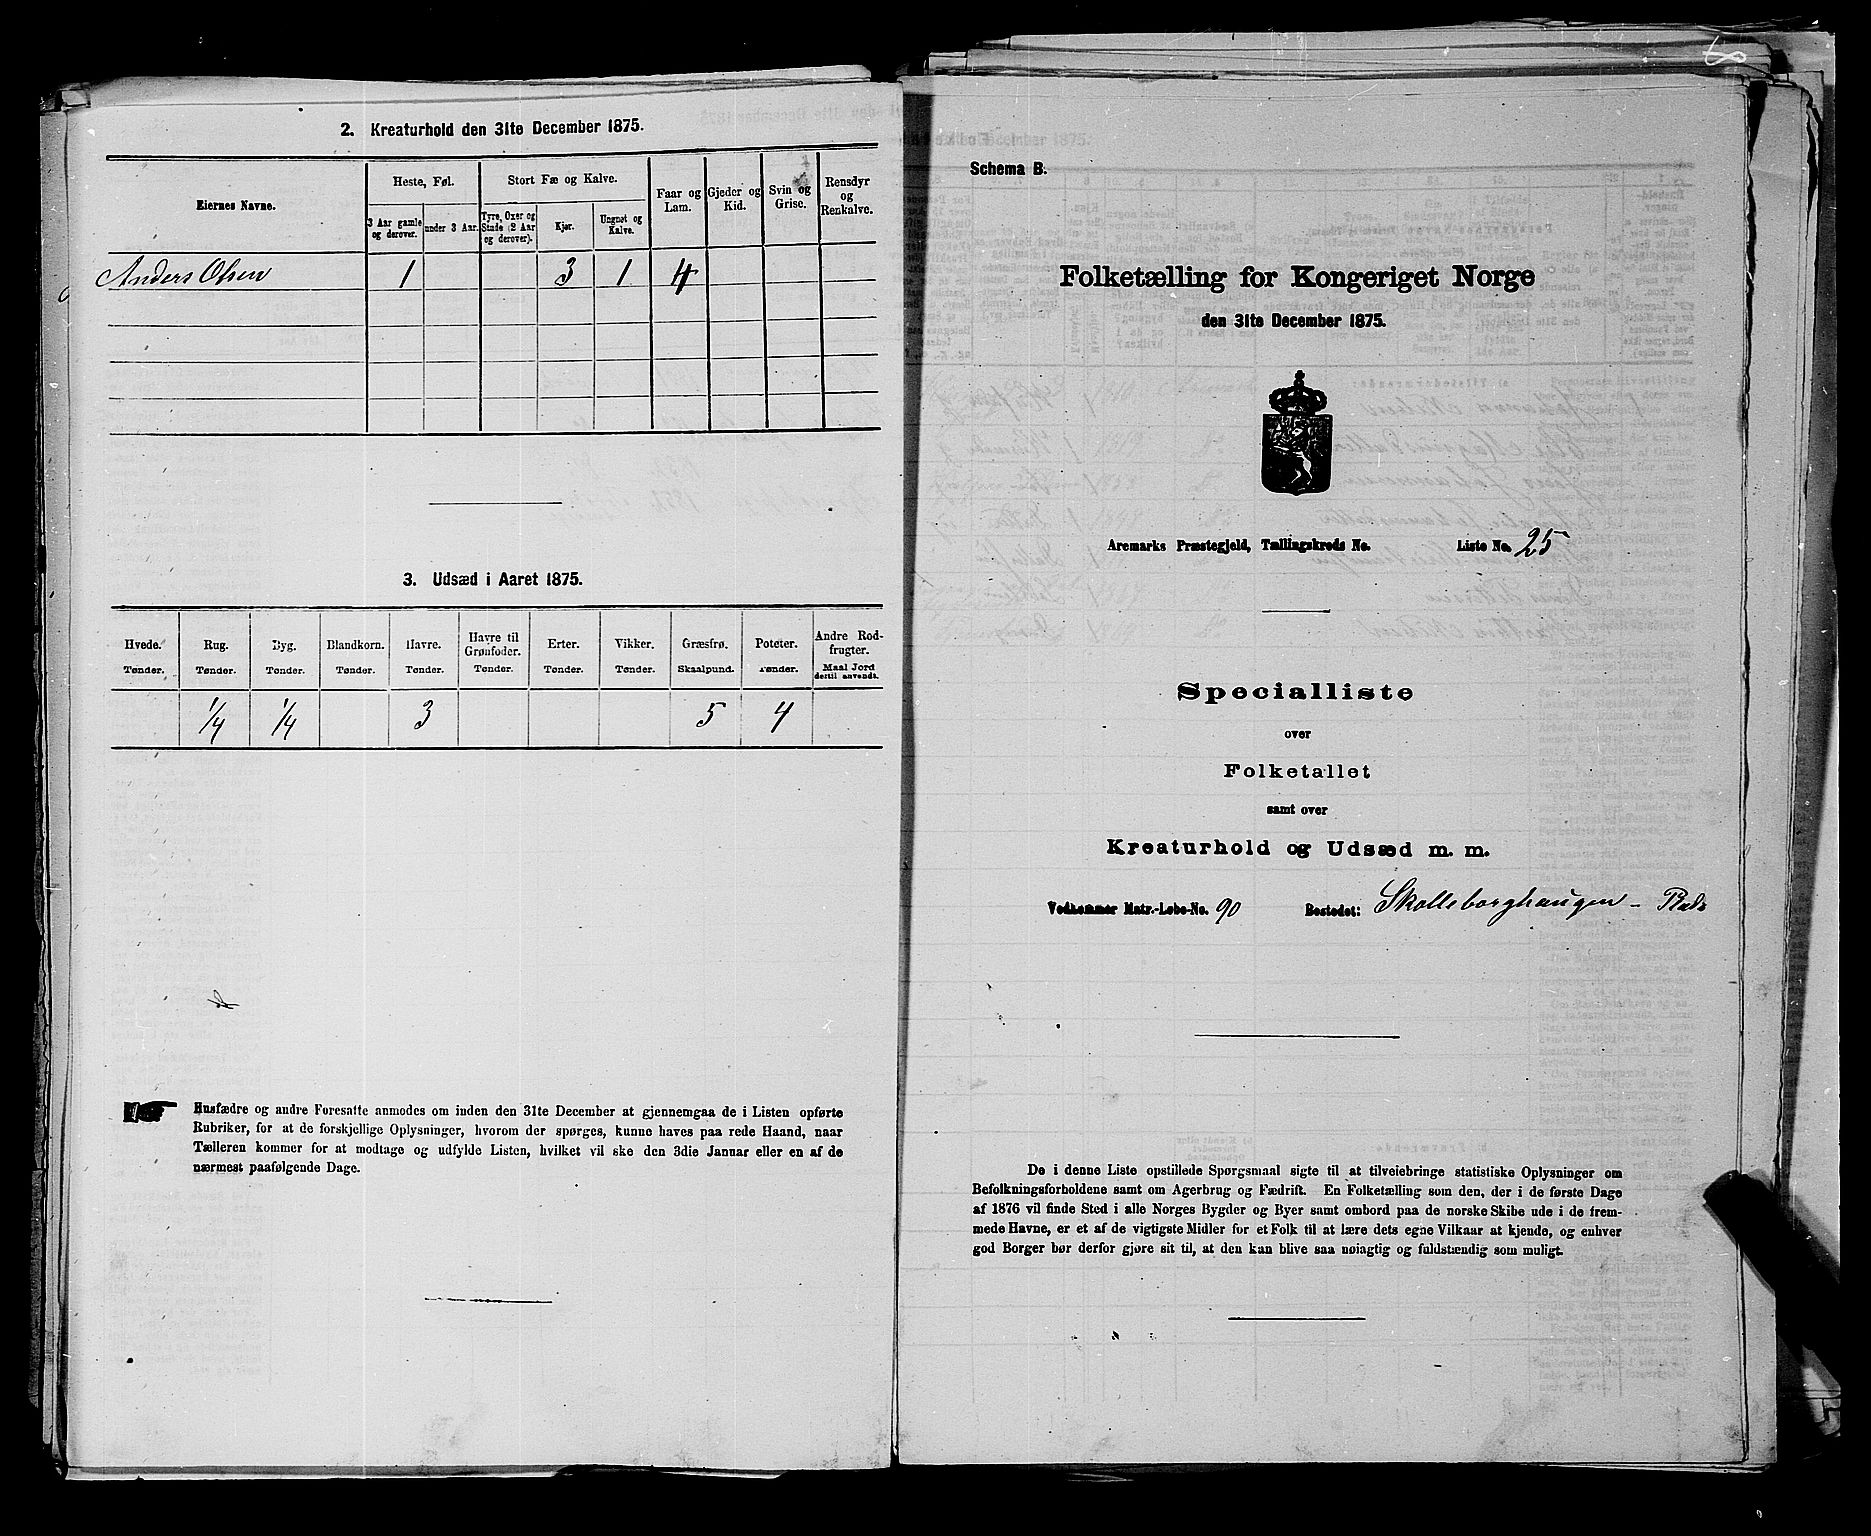 2. Kreaturhold den 31te December 1875.
Eiernes Navne.
Heste, Føl.
Stort Fæ og Kalve.
Faar og Lam.
Gjeder og Kid.
Svin og Grise.
Rensdyr og Renkalve.
3 Aar gamle og derover.
under 3 Aar.
Tyre, Oxer og Stude (2 Aar og derover).
Kjør.
Ungnøt og Kalve.
Anders Olsen 1 3 1 4
3. Udsæd i Aaret 1875.
Hvede. Rug. Byg. Blandkorn. Havre. Havre til Grønfoder. Erter. Vikker. Græsfrø. Poteter. Andre Rodfrugter.
Tønder. Tønder. Tønder. Tønder. Tønder. Tønder. Tønder. Tønder. Skaalpund. Tønder. Maal Jord dertil anvendt.
1/4 1/4 3 5 4
Husfædre og andre Foresatte anmodes om inden den 31te December at gjennemgaa de i Listen opførte
Rubriker, for at de forskjellige Oplysninger, hvorom der spørges, kunne haves paa rede Haand, naar
Tælleren kommer for at modtage og udfylde Listen, hvilket vil ske den 3die Januar eller en af de
nærmest paafølgende Dage.
Schema B.
Folketælling for Kongeriget Norge
den 31te December 1875.
Aremarks Præstegjeld, Tællingskreds No. Liste No. 25
Specialliste
over
Folketallet
samt over
Kreaturhold og Udsæd m. m.
Vedkommer Matr.-Løbe-No. 90 Bostedet: Skolleborghaugen -
De i denne Liste opstillede Spørgsmaal sigte til at tilveiebringe statistiske Oplysninger om
Befolkningsforholdene samt om Agerbrug og Fædrift. En Folketælling som den, der i de første Dage
af 1876 vil finde Sted i alle Norges Bygder og Byer samt ombord paa de norske Skibe ude i de frem-
mede Havne, er et af de vigtigste Midler for et Folk til at lære dets egne Vilkaar at kjende, og enhver
god Borger bør derfor gjøre sit til, at den kan blive saa nøiagtig og fuldstændig som muligt.